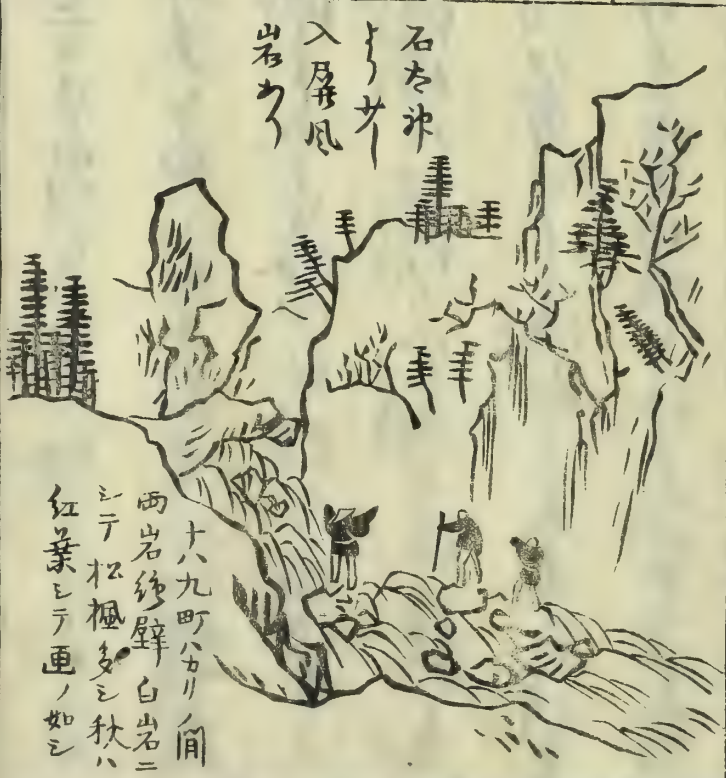 石太神
より少し
入屏風
岩あり
十八九町ハカリノ間
両岩絶壁白岩ニ
シテ松楓多シ秋ハ
紅葉シテ画ノ如シ